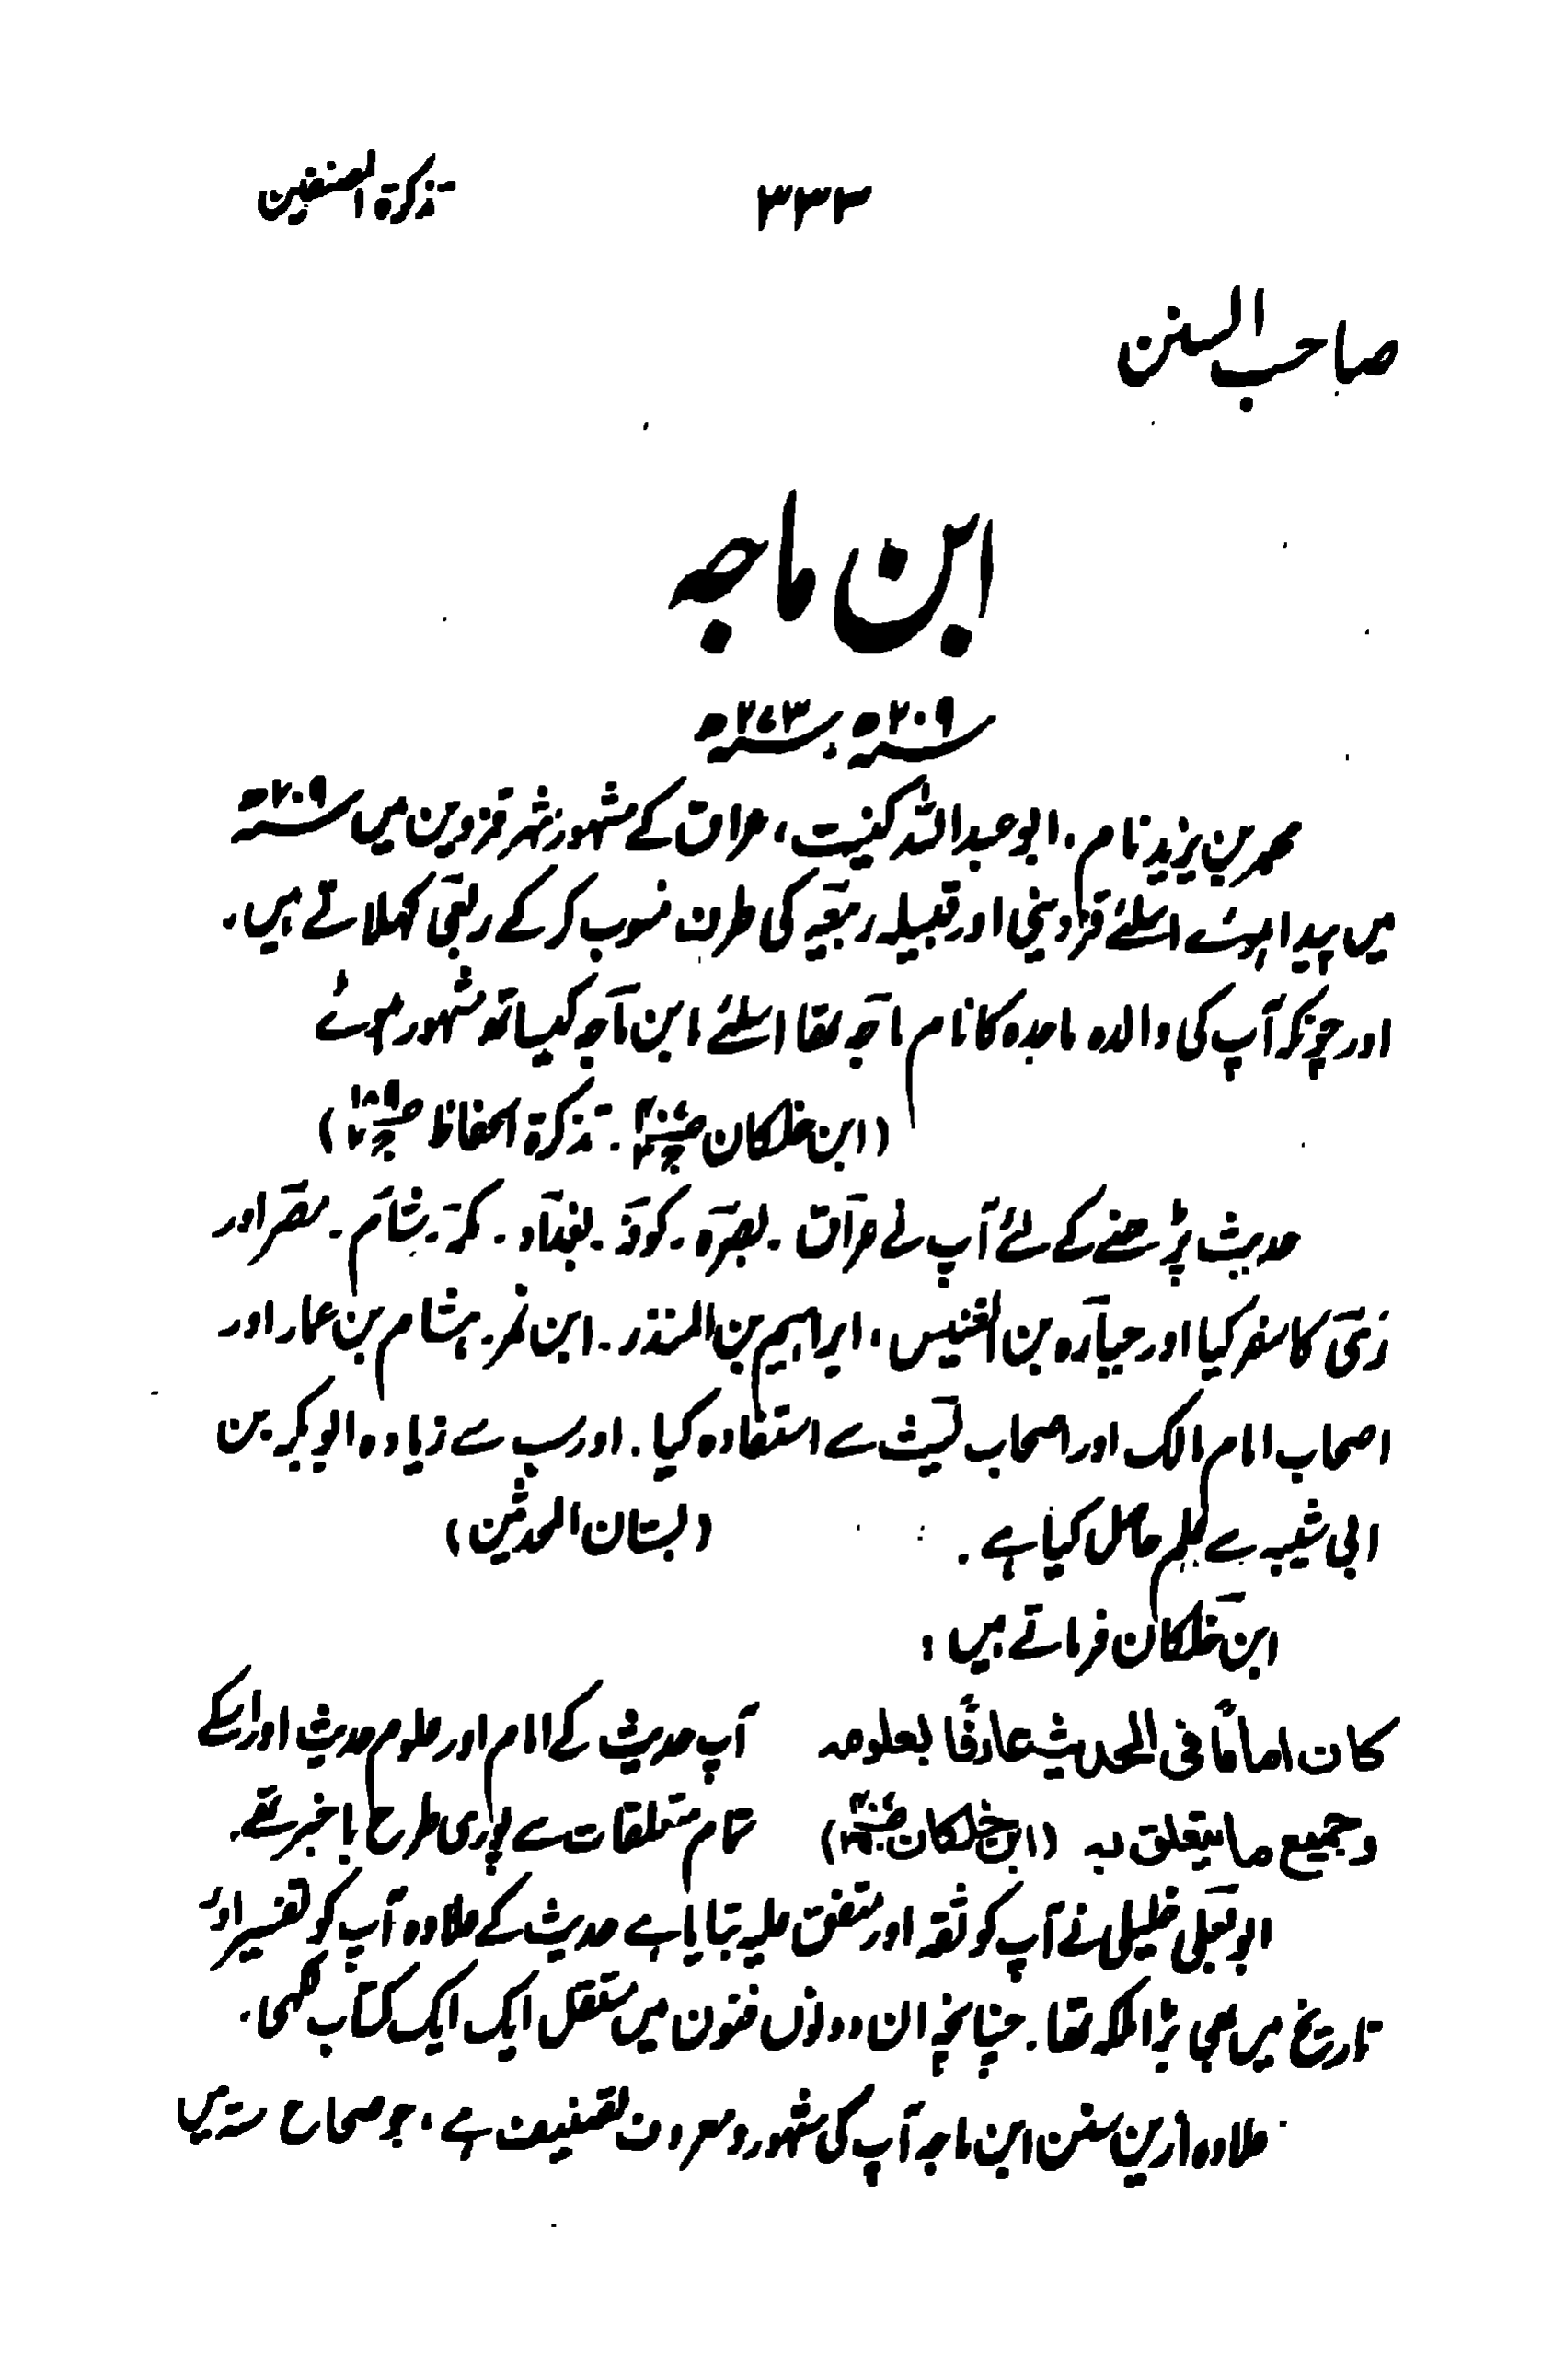 تذکرۃ المصنفین ۳۳۳
صاحب السنن
ابن ماجہ
سنہ ۲۰۹ھ . سنہ ۲۷۳ھ
محمد بن یزید نام، ابو عبداللہ کنیت، عراق کے مشہور شہر قزوین میں سنہ ۲۰۹ھ
میں پیدا ہوئے اسلئے قزوینی اور قبیلہ ربیعہ کی طرف منسوب کرکے ربعی کہلاتے ہیں.
اور چونکہ آپ کی والدہ ماجدہ کا نام ماجہ تھا اسلئے ابن ماجہ کیساتھ مشہور ہوئے
(ابن خلکان . تذکرۃ الحفاظ)
حدیث پڑھنے کے لئے آپ نے عراق . بصرہ . کوفہ . بغداد . مکہ . شام . مصر اور
رَی کا سفر کیا اور جبارہ بن المغلس، ابراہیم بن المنذر . ابن نمیر . ہشام بن عمار اور
اصحاب امام مالک اور اصحاب لیث سے استفادہ کیا . اور سب سے زیادہ ابو بکر بن
ابی شیبہ سے علم حاصل کیا ہے . (بستان المحدثین)
ابن خلکان فرماتے ہیں :
کان اماماً فی الحدیث عارفاً بعلومہ آپ حدیث کے امام اور علوم حدیث اور اسکے
وجمیع ما یتعلق بہ (ابن خلکان) تمام متعلقات سے پوری طرح باخبر تھے.
ابو یعلی خلیلی نے آپ کو ثقہ اور متفق علیہ بتایا ہے حدیث کے علاوہ آپ کو تفسیر اور
تاریخ میں بھی بڑا ملکہ تھا . چنانچہ ان دونوں فنون میں مستقل ایک ایک کتاب لکھی.
علاوہ ازیں سنن ابن ماجہ آپ کی مشہور و معروف تصنیف ہے، جو صحاح ستہ میں